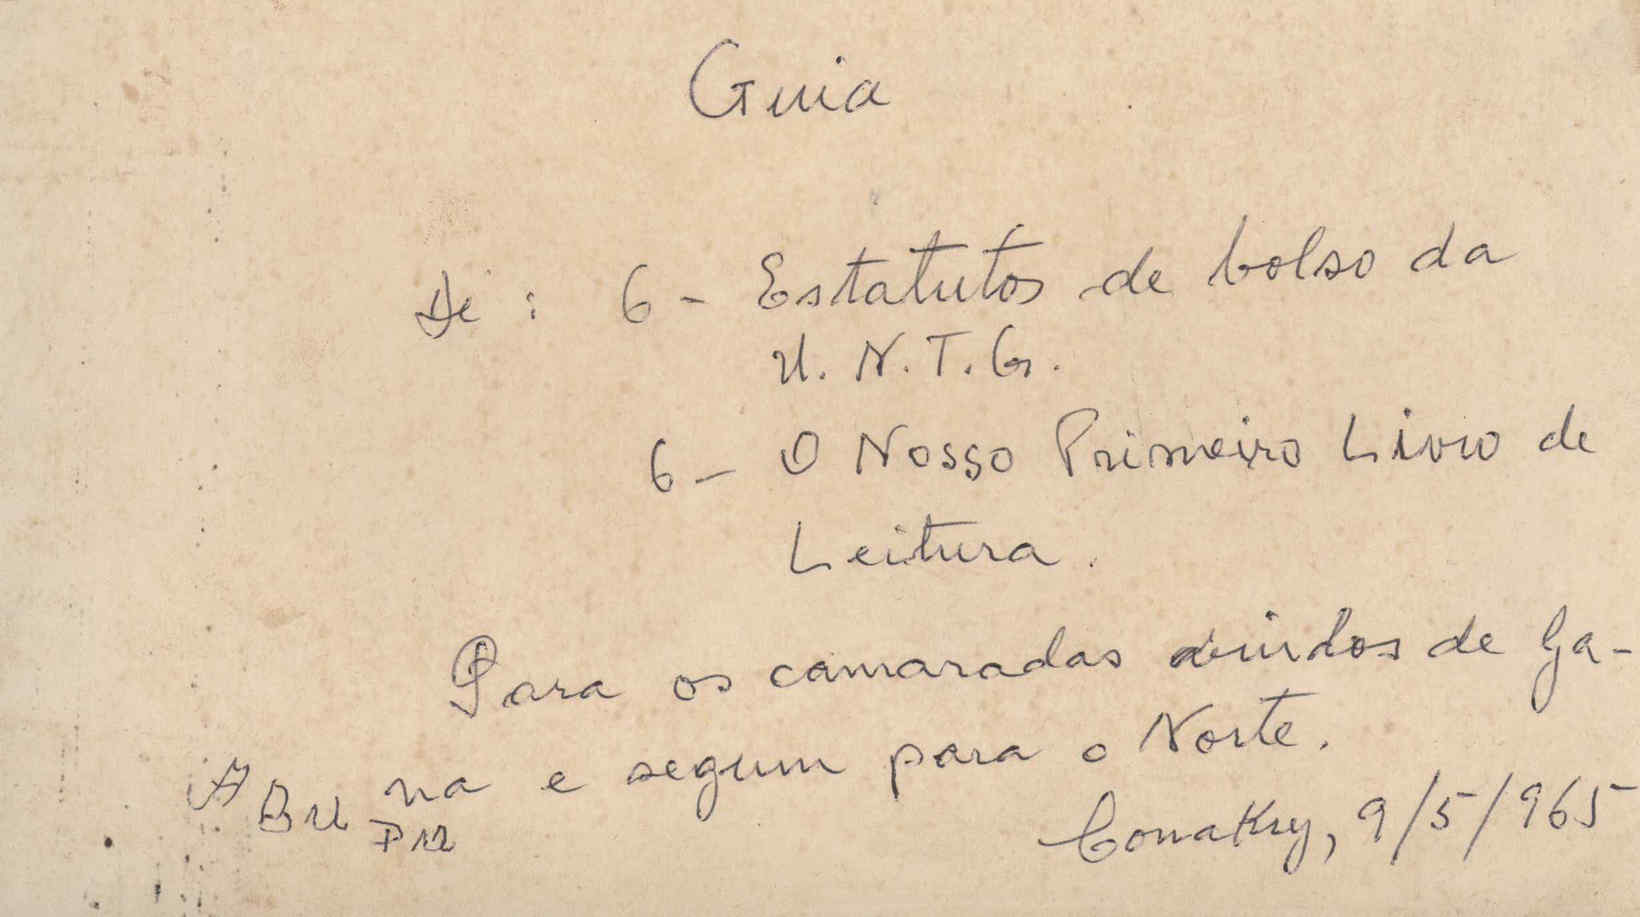 Guia
De : 6 - Estatutos de bolso da
U. N. T. G.
6 - O Nosso Primeiro Livro de
Leitura.
Para os camaradas vindos de Ga-
na e segum para o Norte.
Conakry, 9/5/965